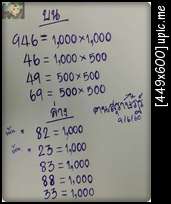 บน
946 = 1,000 × 1,000
46 = 1,000 × 500
49 = 500 × 500
69 = 500 × 500
ล่าง
82 = 1,000
23 = 1,000
83 = 1,000
88 = 1,000
33 = 1,000
[449x600] upic.me